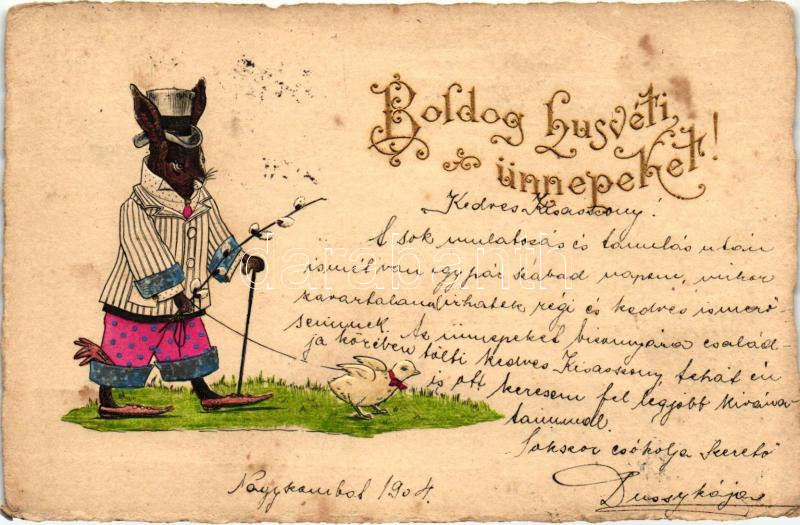 Boldog husvéti
ünnepeket!
Kedves Kisasszony!
A sok mulatozás és tanulás után
ismét van egy pár szabad napom, mikor
zavartalanul irhatok régi és kedves ismerő-
seimnek. Az ünnepeket bizonyára család-
ja körében tölti kedves Kisasszony, tehát én
is ott keresem fel legjobb kivána-
taimmal.
Sokszor csókolja szerető
Nagykombat 1904.
darabanth